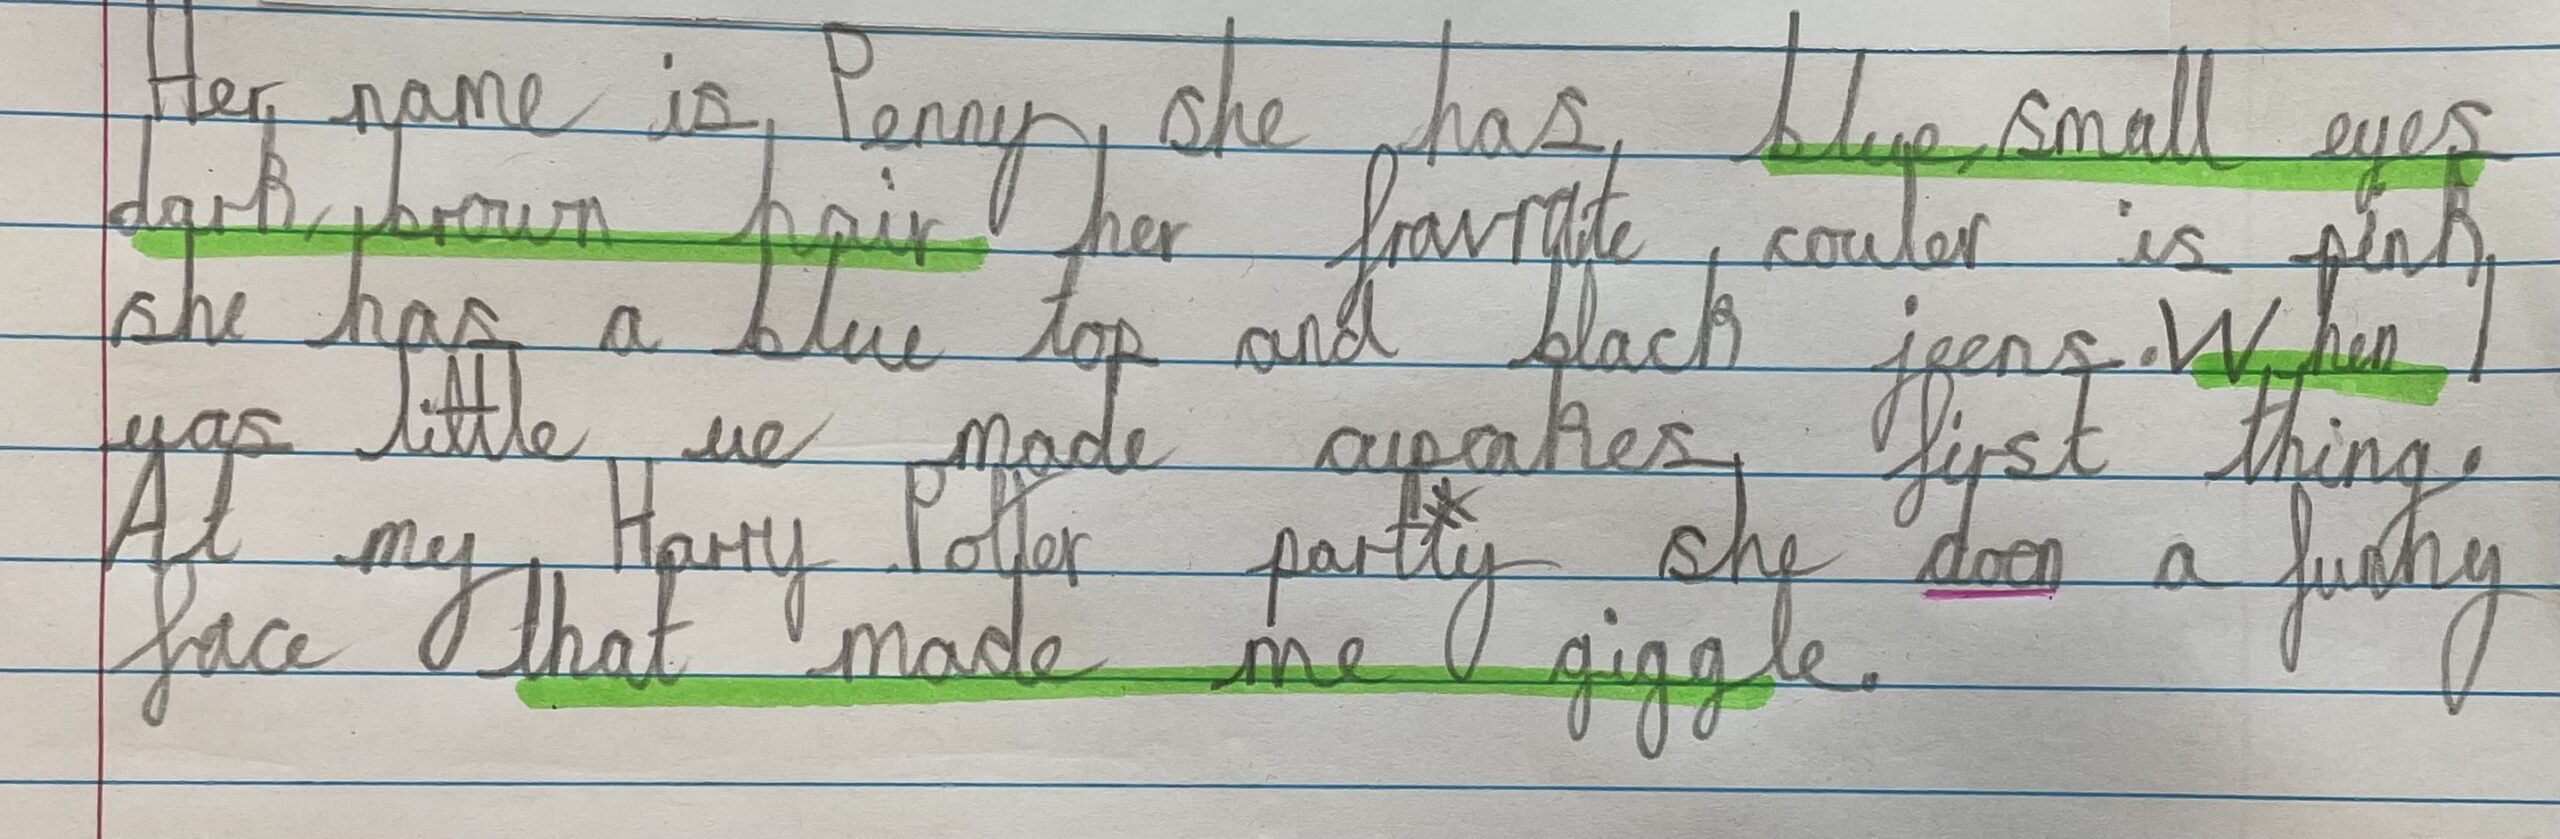 Her name is Penny, she has blue, small eyes
dark, brown hair her fravrate couler is pink,
she has a blue top and black jeens. When I
was little we made cupcakes first thing.
At my Harry Potter party she doen a funny
face that made me giggle.